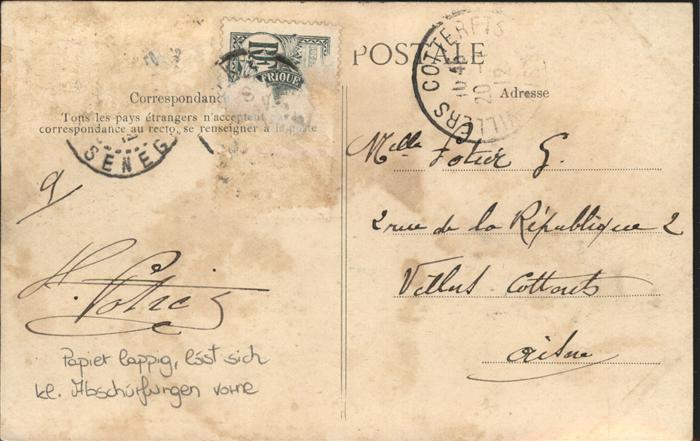 POSTALE
RF
FRIQUE
Correspondance
Tous les pays étrangers n'acceptent pas de
correspondance au recto, se renseigner à la poste
SENEG
VILLERS COTTERETS
10 45
20
12
Adresse
Melle
G.
2 rue de la République 2
Aisne
Papier lappig, löst sich
kl. Abschürfungen vorne